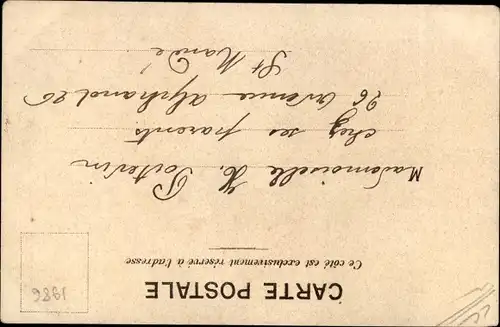 CARTE POSTALE
Ce côté est exclusivement réservé à l'adresse
Mademoiselle H. Poitevin
chez ses parents
26 avenue alphand 26
St Mandé
1986